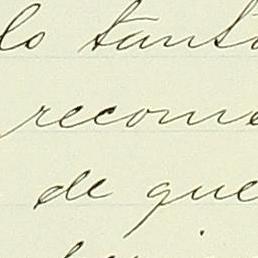 lo tanto
recome
de que